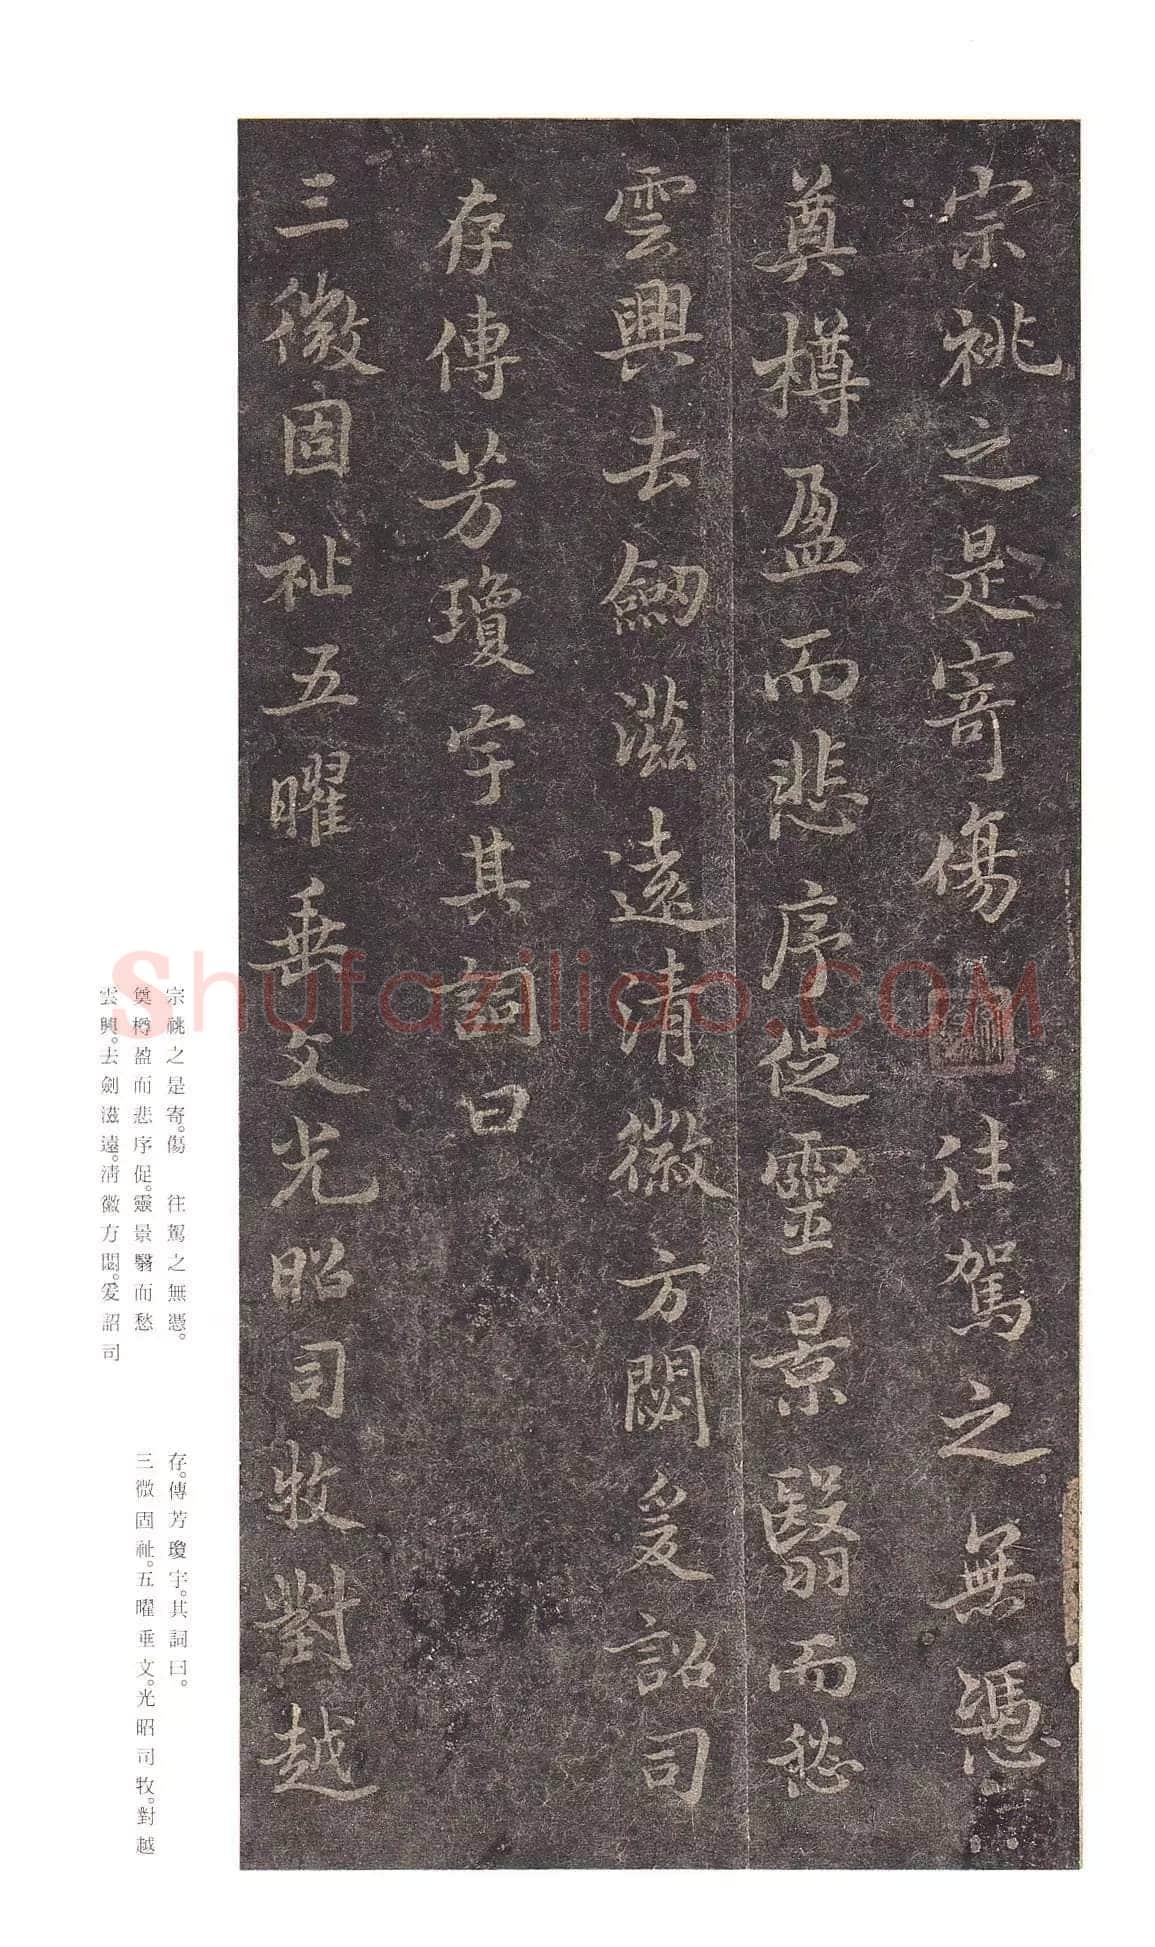 宗祧之是寄傷往駕之無憑
奠樽盈而悲序促靈景翳而愁
雲興去劒滋遠清徽方閟爰詔司
存傳芳瓊宇其詞曰
三微固祉五曜垂文光昭司牧對越
宗祧之是寄。傷 往駕之無憑。
奠樽盈而悲序促。靈景翳而愁
雲興。去劍滋遠。淸徽方閟。爰詔司
存。傳芳瓊宇。其詞曰。
三微固祉。五曜垂文。光昭司牧。對越
Shufaziliao.COM